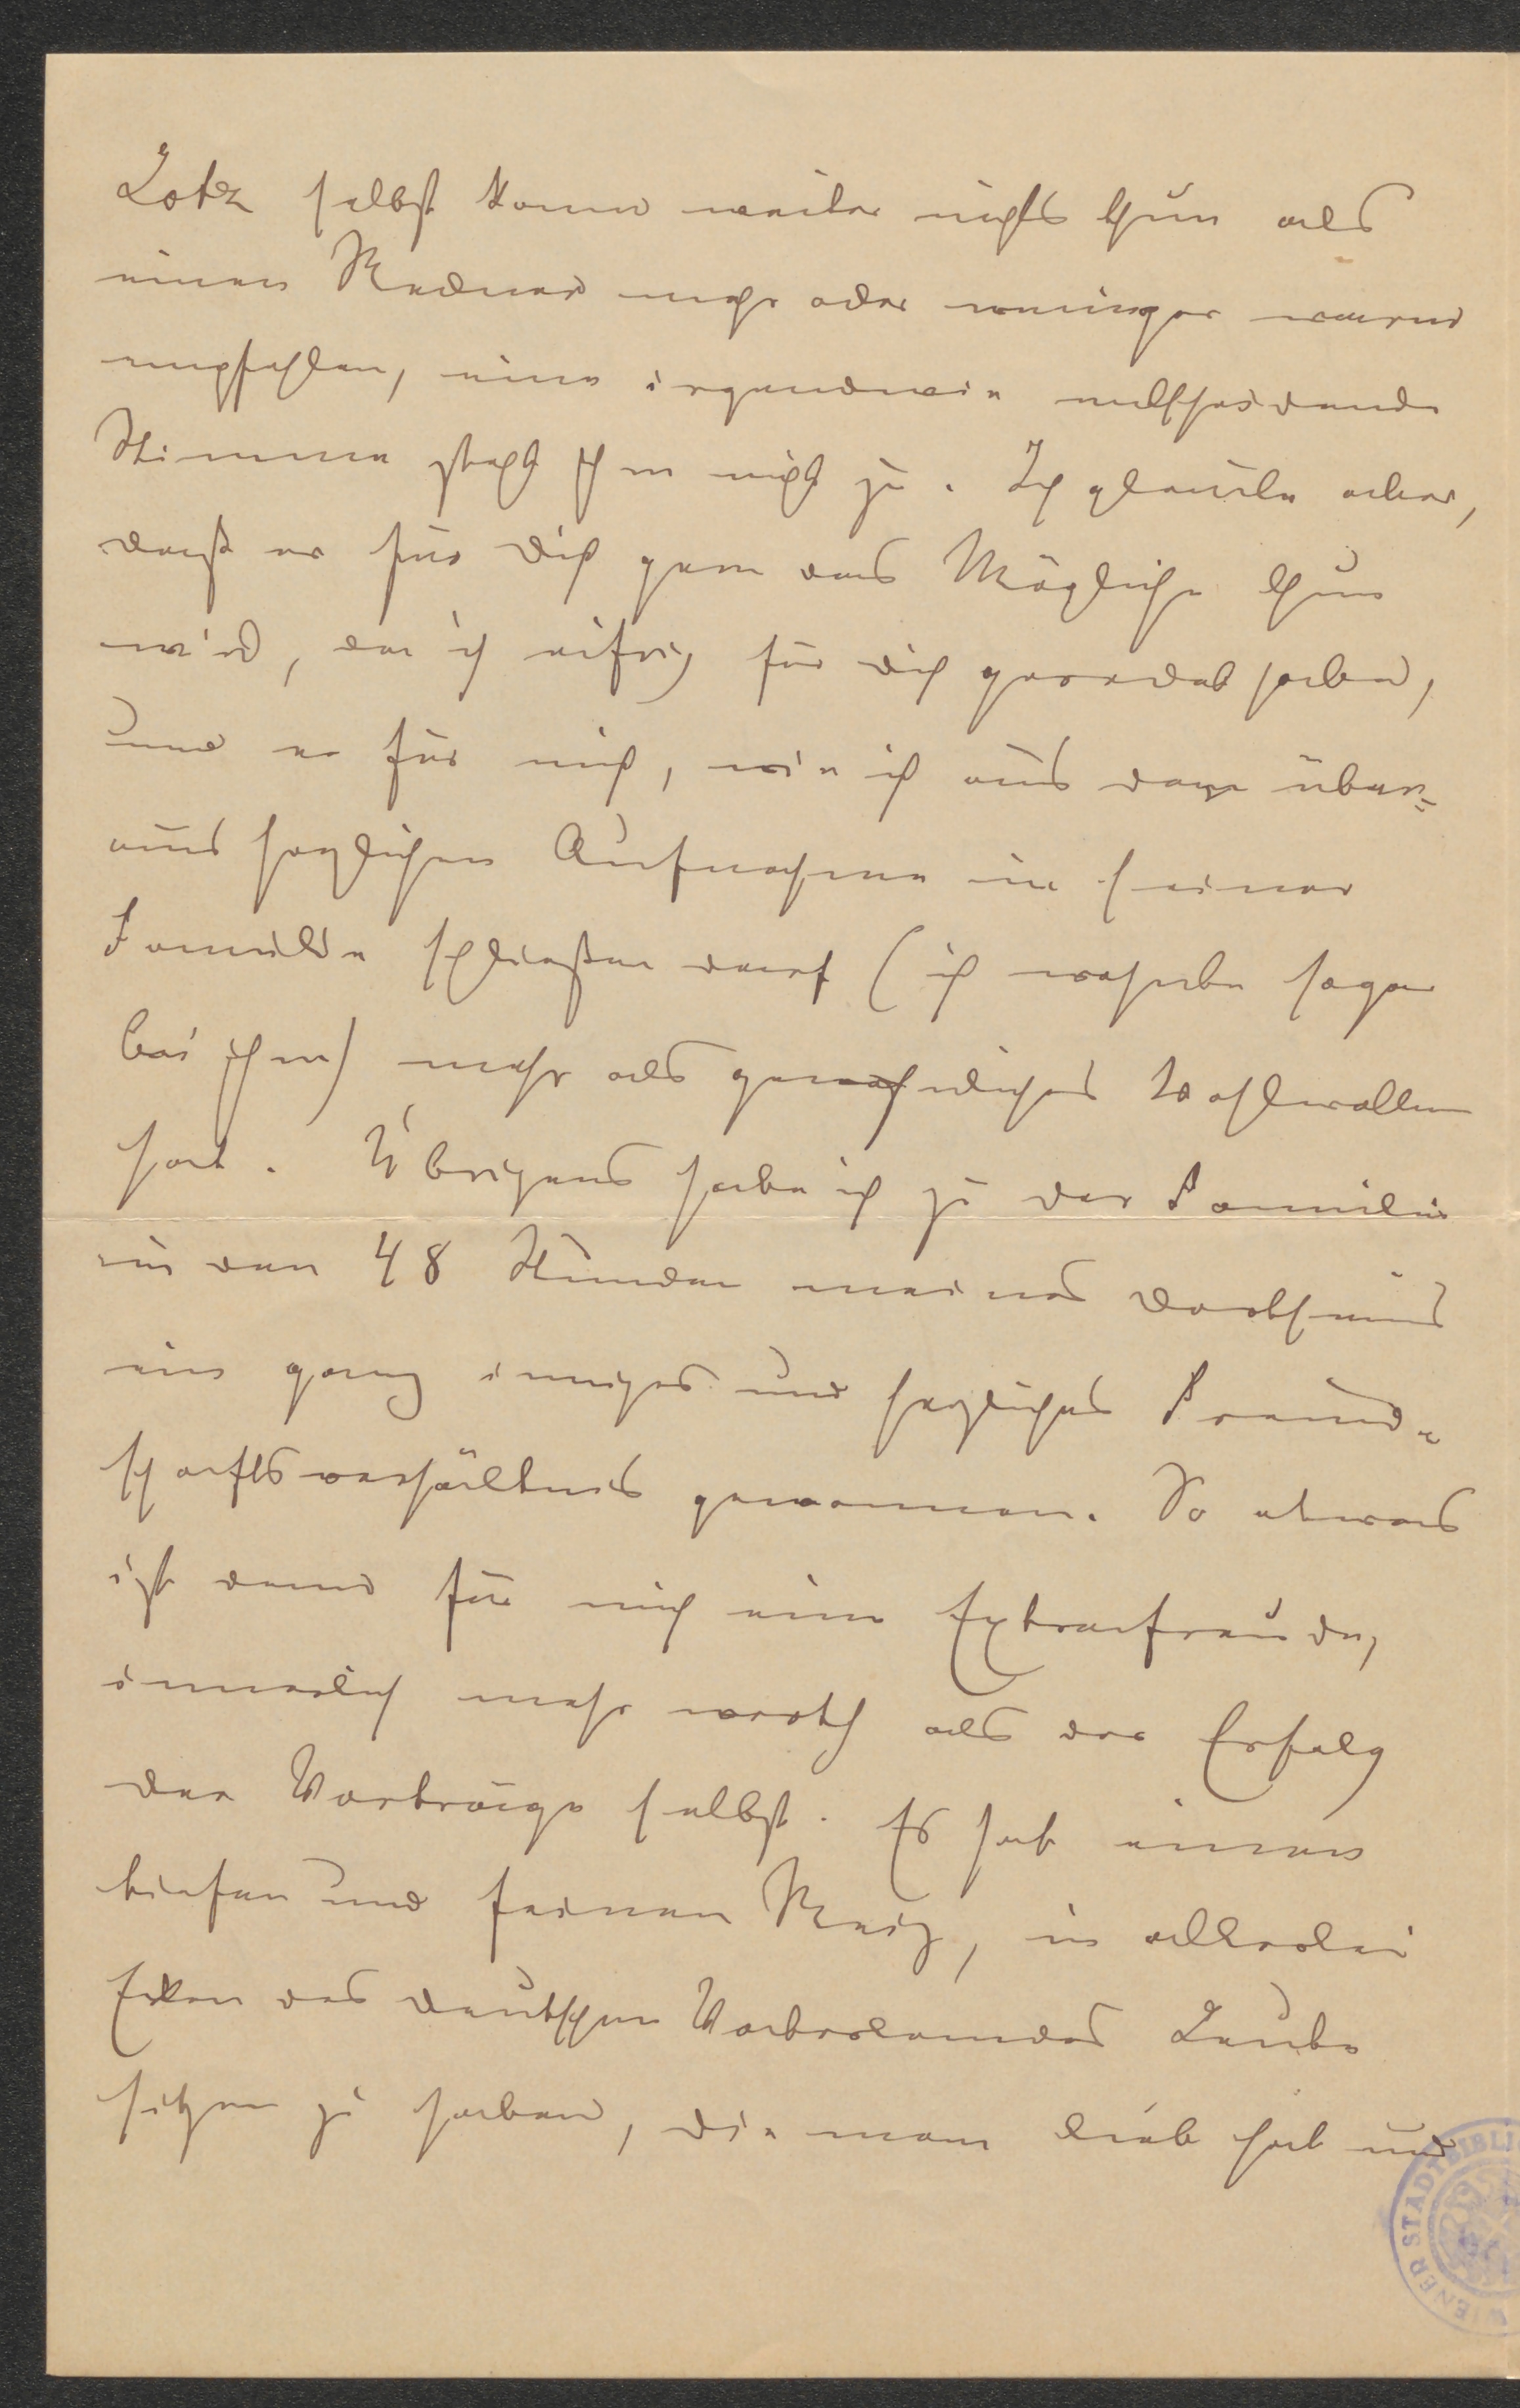 Lotz selbst kann weiter nichts thun als
einen Redner mehr oder weniger warm
empfehlen, eine irgendwie entscheidende
Stimme steht ihm nicht zu. Ich glaube aber,
daß er für dich gern das Mögliche thun
wird, da ich eifrig für dich geredet habe,
und er für mich, wie ich aus der über=
aus herzlichen Aufnahme in seiner
Familie schließen darf (ich wohnte sogar
bei ihm) mehr als gewöhnliches Wohlwollen
hat. Übrigens habe ich zu der Familie
in den 48 Stunden meines Dortseins
ein ganz inniges und herzliches Freund=
schaftsverhältnis gewonnen. So etwas
ist dann für mich eine Extrafreude,
innerlich mehr werth als der Erfolg
der Vorträge selbst. Es hat einen
tiefen und feinen Reiz, in allerlei
Ecken des deutschen Vaterlandes Leute
sitzen zu haben, die man lieb hat und
WIENER STADTBIBLI